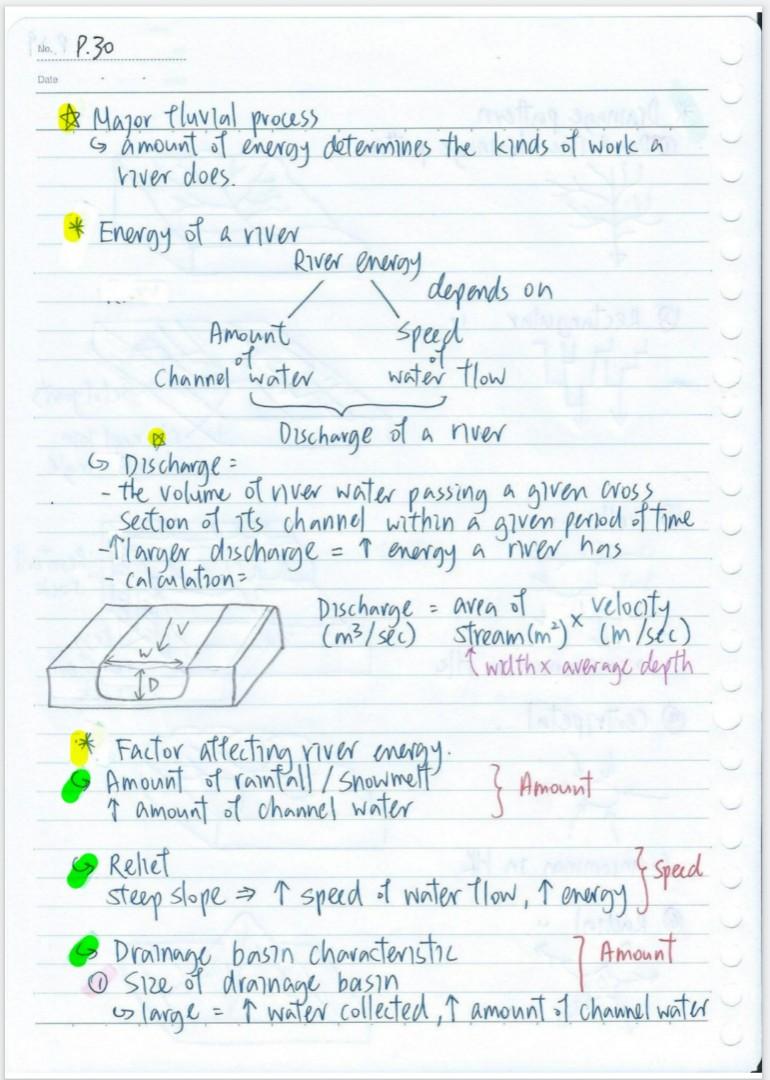 No. P.30
Date
☆ Major fluvial process
↳ amount of energy determines the kinds of work a
river does.
* Energy of a river
River energy
depends on
Amount of channel water
Speed of water flow
Discharge of a river
↳ Discharge =
- the volume of river water passing a given cross
section of its channel within a given period of time
- ↑ larger discharge = ↑ energy a river has
- calculation =
Discharge = area of × velocity
(m³/sec) stream(m²) (m/sec)
↑ width x average depth
V
W
D
* Factor affecting river energy.
↳ Amount of rainfall / snowmelt
↑ amount of channel water
} Amount
↳ Relief
steep slope ⇒ ↑ speed of water flow, ↑ energy } Speed
↳ Drainage basin characteristic ] Amount
① Size of drainage basin
↳ large = ↑ water collected, ↑ amount of channel water